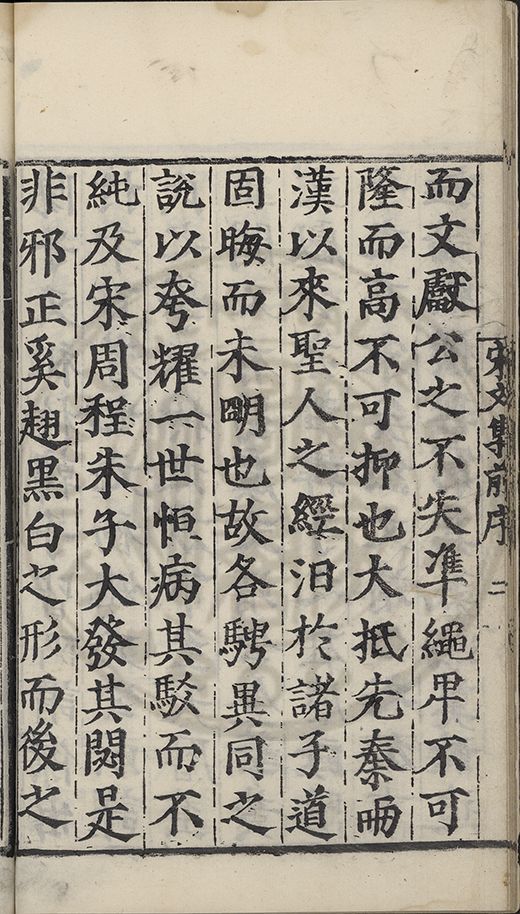 而文獻公之不失準繩卑不可
隆而高不可抑也大抵先秦兩
漢以來聖人之經汨於諸子道
固晦而未明也故各騁異同之
說以夸耀一世恒病其駁而不
純及宋周程朱子大發其閟是
非邪正奚翅黑白之形而後之
宋文集前序 二